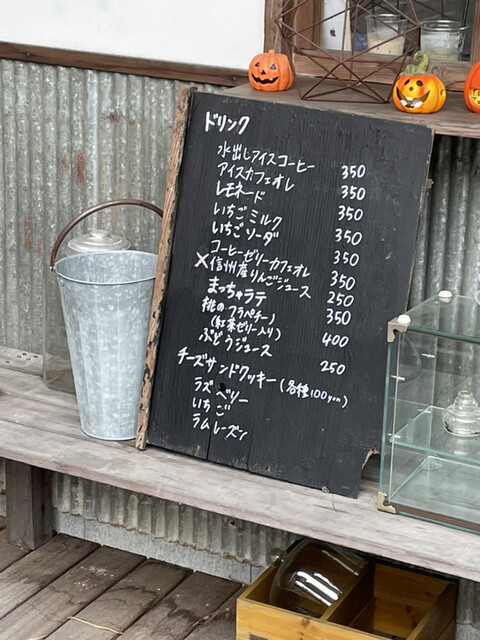 ドリンク
水出しアイスコーヒー 350
アイスカフェオレ 350
レモネード 350
いちごミルク 350
いちごソーダ 350
コーヒーゼリーカフェオレ 350
×信州産りんごジュース 250
まっちゃラテ 350
桃のフラペチーノ
(紅茶ゼリー入り) 400
ぶどうジュース 250
チーズサンドクッキー(各種100yen)
ラズベリー
いちご
ラムレーズン